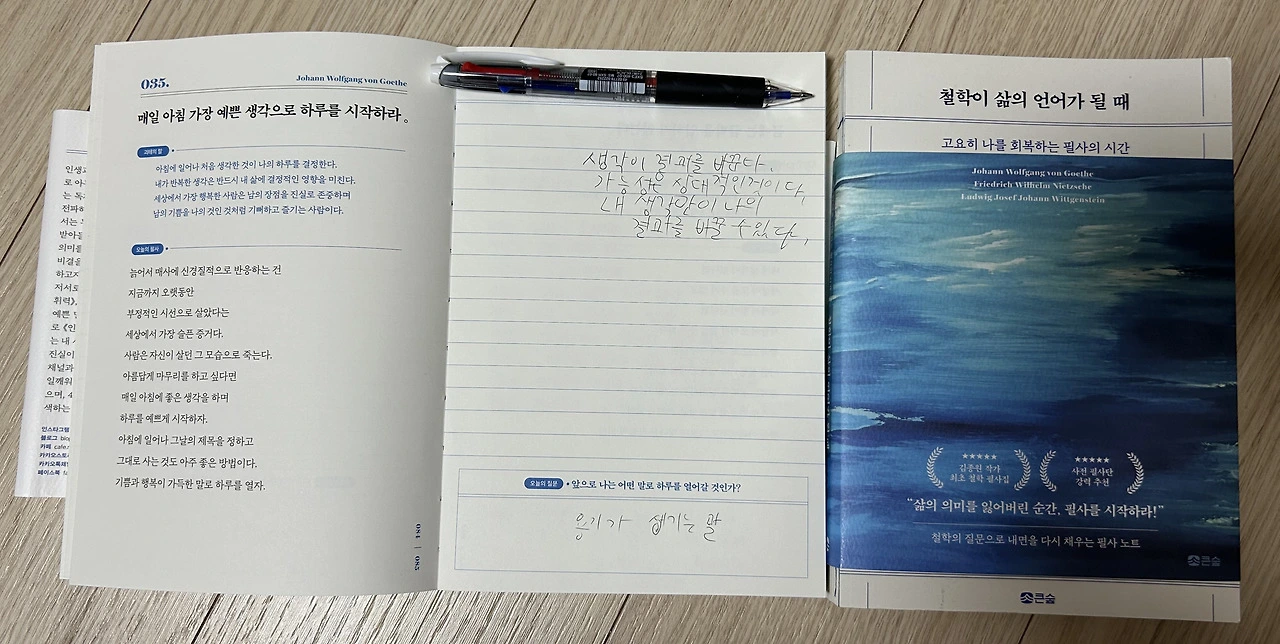 인생과
로 아
는 독
전파하
서는 
받아들
의미를
비결을
하고자
저서로
휘력》,
예쁜 
로 《인
는 내 
진실이
채널과
일깨워
으며, 4
색하는
인스타그램
블로그 blog
카페 cafe.
카카오스토리
카카오톡채널
페이스북
035.
Johann Wolfgang von Goethe
매일 아침 가장 예쁜 생각으로 하루를 시작하라。
괴테의 말
아침에 일어나 처음 생각한 것이 나의 하루를 결정한다.
내가 반복한 생각은 반드시 내 삶에 결정적인 영향을 미친다.
세상에서 가장 행복한 사람은 남의 장점을 진실로 존중하며
남의 기쁨을 나의 것인 것처럼 기뻐하고 즐기는 사람이다.
오늘의 필사
늙어서 매사에 신경질적으로 반응하는 건
지금까지 오랫동안
부정적인 시선으로 살았다는
세상에서 가장 슬픈 증거다.
사람은 자신이 살던 그 모습으로 죽는다.
아름답게 마무리를 하고 싶다면
매일 아침에 좋은 생각을 하며
하루를 예쁘게 시작하자.
아침에 일어나 그날의 제목을 정하고
그대로 사는 것도 아주 좋은 방법이다.
기쁨과 행복이 가득한 말로 하루를 열자.
084 | 085
생각이 결과를 바꾼다.
가능성는 상대적인것이다.
내 생각만이 나의
결과를 바꿀 수있다.
오늘의 질문
앞으로 나는 어떤 말로 하루를 열어갈 것인가?
용기가 생기는 말
철학이 삶의 언어가 될 때
고요히 나를 회복하는 필사의 시간
Johann Wolfgang von Goethe
Friedrich Wilhelm Nietzsche
Ludwig Josef Johann Wittgenstein
★★★★★
김종원 작가
최초 철학 필사집
★★★★★
사전 필사단
강력 추천
“삶의 의미를 잃어버린 순간, 필사를 시작하라!”
철학의 질문으로 내면을 다시 채우는 필사 노트
큰숲
큰숲